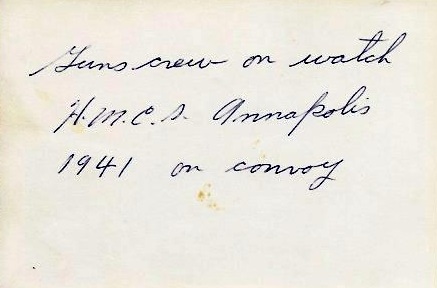 Guns crew on watch
H.M.C.S. Annapolis
1941 on convoy